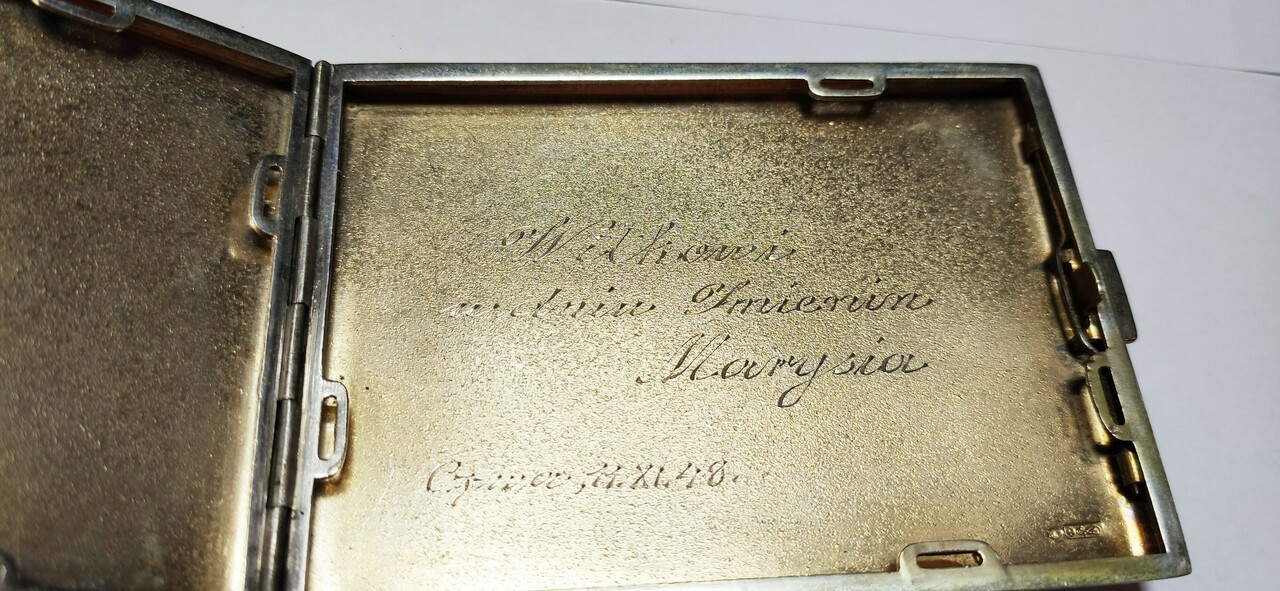 Witkowi
w dniu Imienin
Marysia
XI.48.